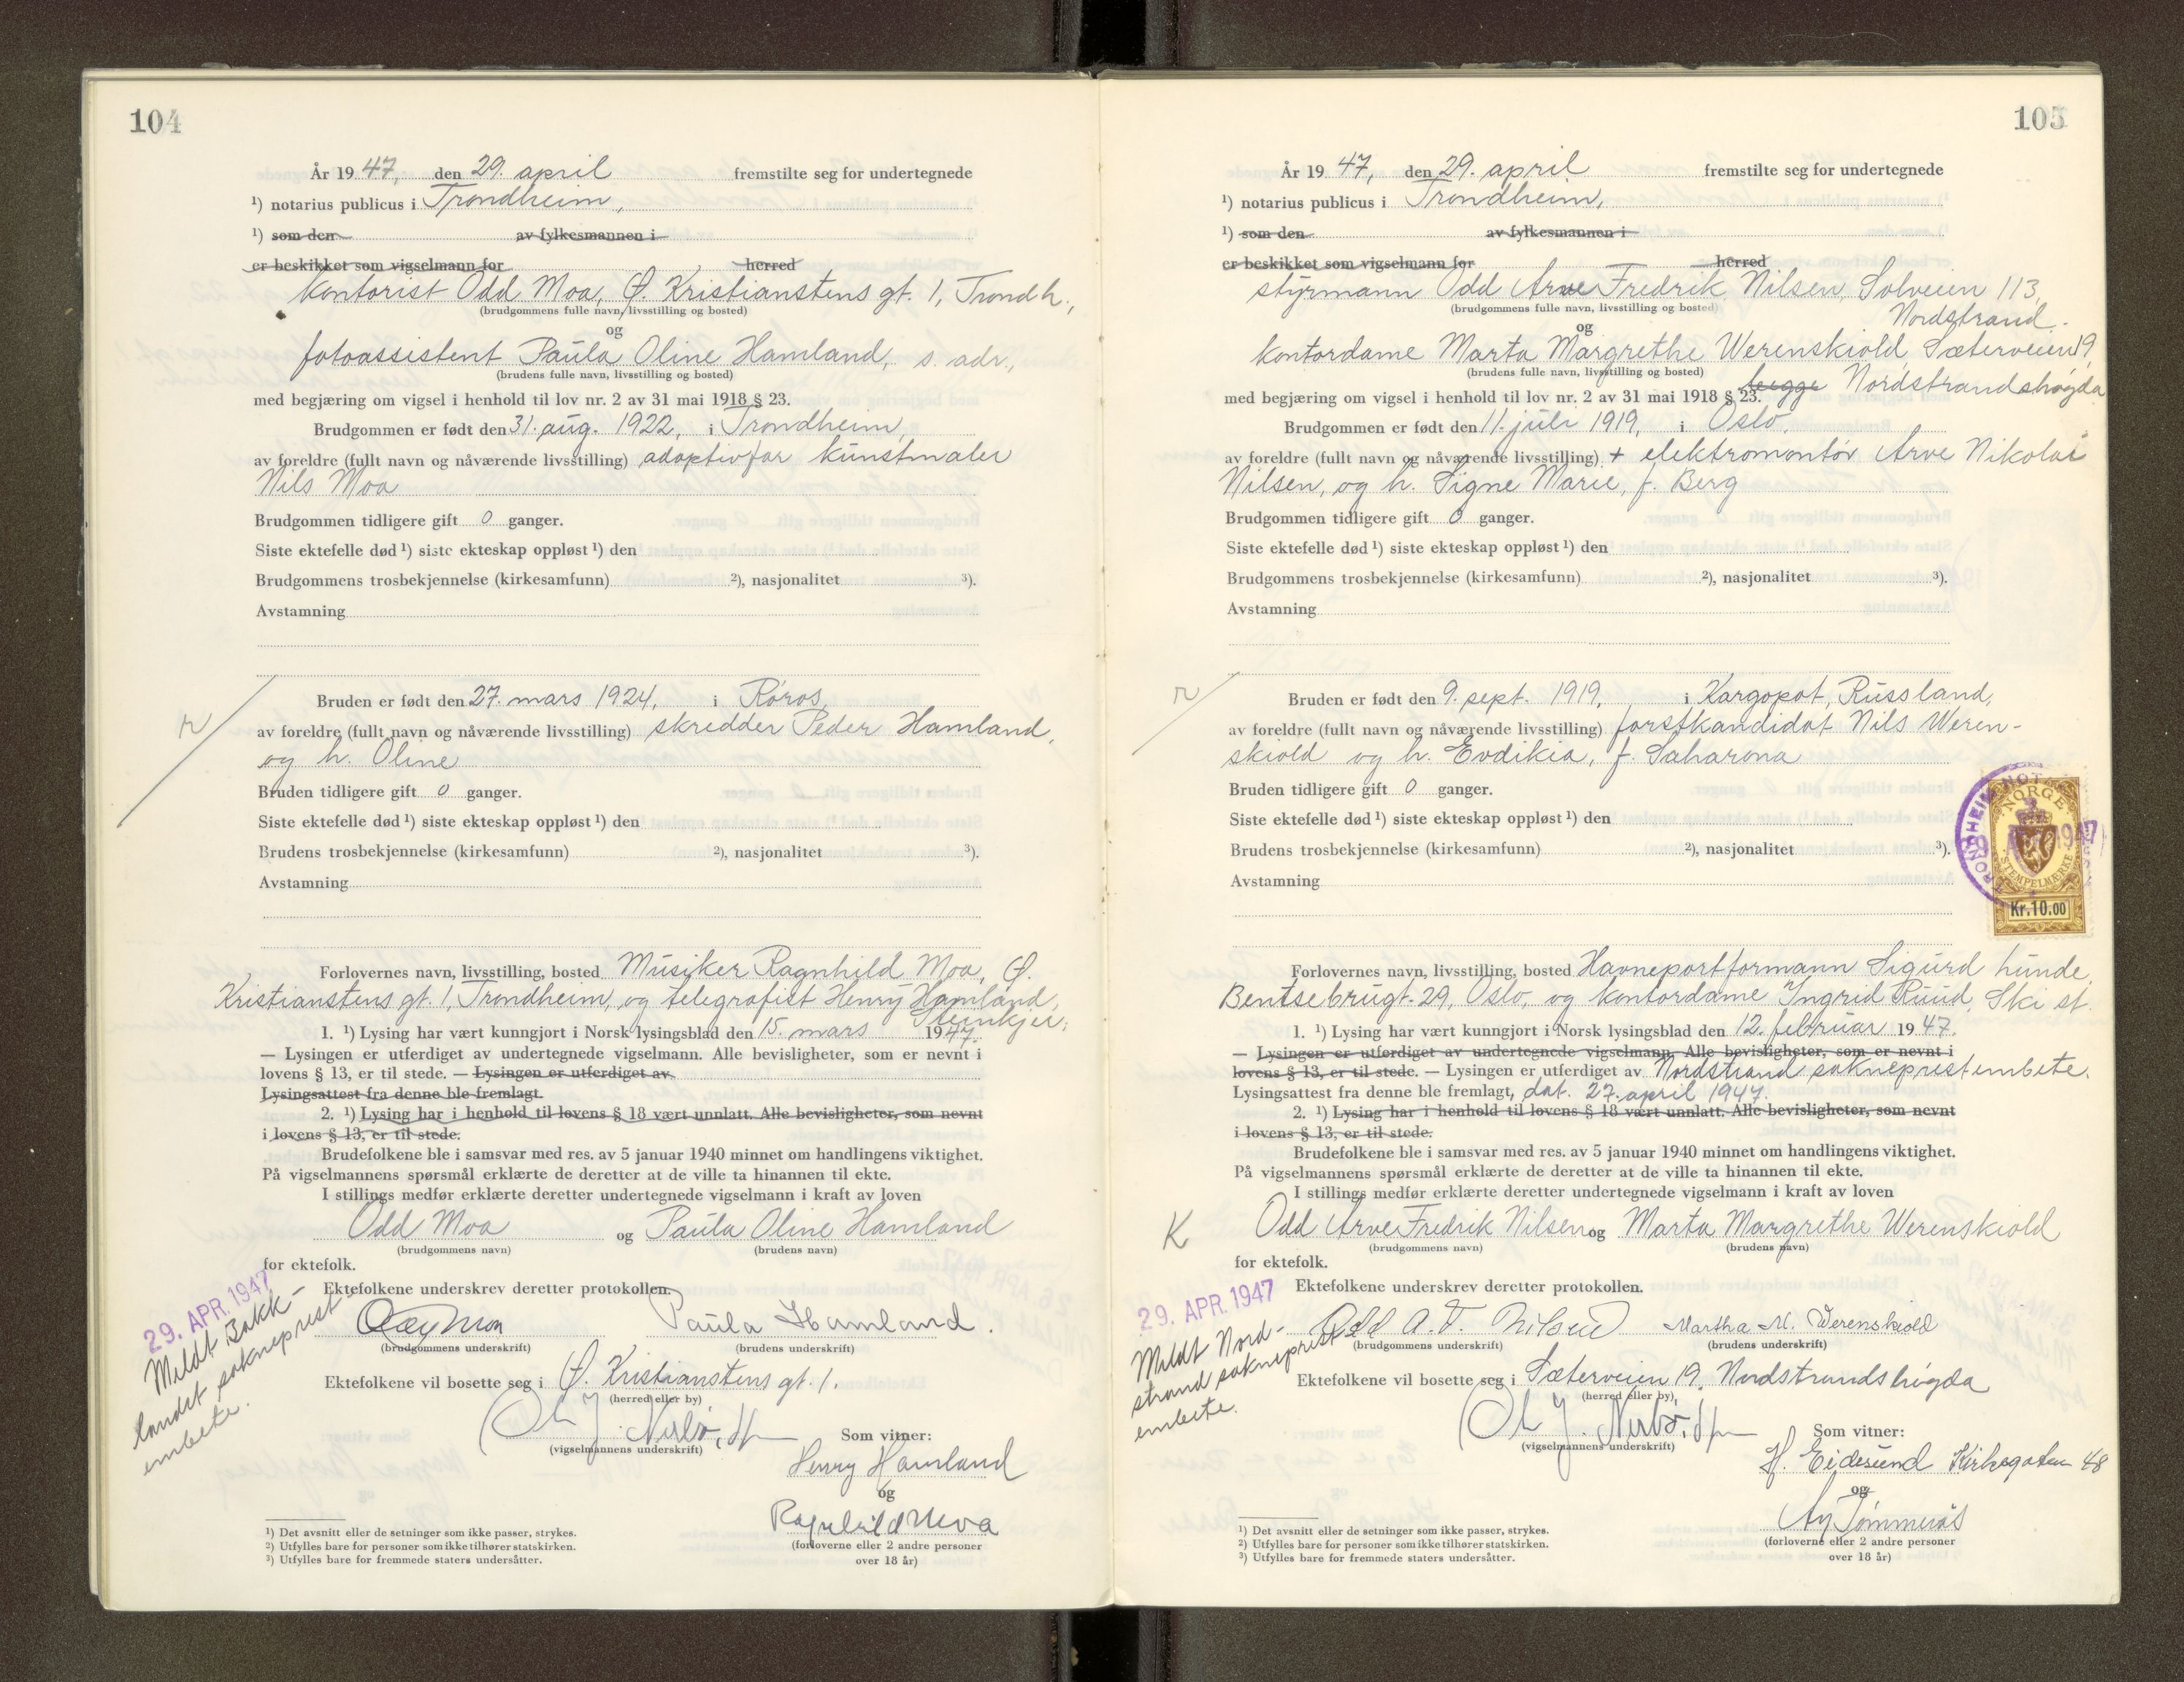 104
År 19 47, den 29. april fremstilte seg for undertegnede
¹) notarius publicus i Trondheim,
¹) som den av fylkesmannen i
er beskikket som vigselmann for herred
kontorist Odd Moa, Ø. Kristianstens gt. 1, Trondh.,
(brudgommens fulle navn, livsstilling og bosted)
og
fotoassistent Paula Oline Hamland, s. adr.,
(brudens fulle navn, livsstilling og bosted)
med begjæring om vigsel i henhold til lov nr. 2 av 31 mai 1918 § 23.
Brudgommen er født den 31. aug. 1922, i Trondheim,
av foreldre (fullt navn og nåværende livsstilling) adoptivfar kunstmaler
Nils Moa
Brudgommen tidligere gift 0 ganger.
Siste ektefelle død ¹) siste ekteskap oppløst ¹) den
Brudgommens trosbekjennelse (kirkesamfunn) ²), nasjonalitet ³).
Avstamning
Bruden er født den 27. mars 1924, i Røros,
av foreldre (fullt navn og nåværende livsstilling) skredder Peder Hamland,
og h. Oline
Bruden tidligere gift 0 ganger.
Siste ektefelle død ¹) siste ekteskap oppløst ¹) den
Brudens trosbekjennelse (kirkesamfunn) ²), nasjonalitet ³).
Avstamning
Forlovernes navn, livsstilling, bosted Musiker Ragnhild Moa, Ø.
Kristianstens gt. 1, Trondheim, og telegrafist Henry Hamland,
Steinkjer,
1. ¹) Lysing har vært kunngjort i Norsk lysingsblad den 15. mars 1947.
— Lysingen er utferdiget av undertegnede vigselmann. Alle bevisligheter, som er nevnt i
lovens § 13, er til stede. — Lysingen er utferdiget av
Lysingsattest fra denne ble fremlagt.
2. ¹) Lysing har i henhold til lovens § 18 vært unnlatt. Alle bevisligheter, som nevnt
i lovens § 13, er til stede.
Brudefolkene ble i samsvar med res. av 5 januar 1940 minnet om handlingens viktighet.
På vigselmannens spørsmål erklærte de deretter at de ville ta hinannen til ekte.
I stillings medfør erklærte deretter undertegnede vigselmann i kraft av loven
Odd Moa og Paula Oline Hamland
(brudgommens navn) (brudens navn)
for ektefolk.
Ektefolkene underskrev deretter protokollen.
29. APR. 1947
Meldt Bakk-
landet sokneprest-
embete.
Paula Hamland.
(brudgommens underskrift) (brudens underskrift)
Ektefolkene vil bosette seg i Ø. Kristianstens gt. 1.
(herred eller by)
(vigselmannens underskrift)
Som vitner:
Henry Hamland
og
Ragnhild Moa
(forloverne eller 2 andre personer
over 18 år)
¹) Det avsnitt eller de setninger som ikke passer, strykes.
²) Utfylles bare for personer som ikke tilhører statskirken.
³) Utfylles bare for fremmede staters undersåtter.
105
År 19 47, den 29. april fremstilte seg for undertegnede
¹) notarius publicus i Trondheim,
¹) som den av fylkesmannen i
er beskikket som vigselmann for herred
styrmann Odd Arve Fredrik Nilsen, Solveien 113,
Nordstrand.
(brudgommens fulle navn, livsstilling og bosted)
og
kontordame Marta Margrethe Werenskiold, Sæterveien 19,
(brudens fulle navn, livsstilling og bosted)
begge Nordstrandshøgda
med begjæring om vigsel i henhold til lov nr. 2 av 31 mai 1918 § 23.
Brudgommen er født den 11. juli 1919, i Oslo,
av foreldre (fullt navn og nåværende livsstilling) + elektromontør Arve Nikolai
Nilsen, og h. Signe Marie, f. Berg
Brudgommen tidligere gift 0 ganger.
Siste ektefelle død ¹) siste ekteskap oppløst ¹) den
Brudgommens trosbekjennelse (kirkesamfunn) ²), nasjonalitet ³).
Avstamning
Bruden er født den 9. sept. 1919, i Kargopot, Russland,
av foreldre (fullt navn og nåværende livsstilling) forstkandidat Nils Weren-
skiold og h. Evdikia, f. Saharona
Bruden tidligere gift 0 ganger.
Siste ektefelle død ¹) siste ekteskap oppløst ¹) den
Brudens trosbekjennelse (kirkesamfunn) ²), nasjonalitet ³).
Avstamning
NORGE
1947
STEMPELMÆRKE
Kr.10.00
Forlovernes navn, livsstilling, bosted Havneportformann Sigurd Lunde,
Bentsebrugt. 29, Oslo, og kontordame Ingrid Ruud, Ski st.
1. ¹) Lysing har vært kunngjort i Norsk lysingsblad den 12. februar 19 47.
— Lysingen er utferdiget av undertegnede vigselmann. Alle bevisligheter, som er nevnt i
lovens § 13, er til stede. — Lysingen er utferdiget av Nordstrand sokneprestembete.
Lysingsattest fra denne ble fremlagt, dat. 27. april 1947.
2. ¹) Lysing har i henhold til lovens § 18 vært unnlatt. Alle bevisligheter, som nevnt
i lovens § 13, er til stede.
Brudefolkene ble i samsvar med res. av 5 januar 1940 minnet om handlingens viktighet.
På vigselmannens spørsmål erklærte de deretter at de ville ta hinannen til ekte.
I stillings medfør erklærte deretter undertegnede vigselmann i kraft av loven
K
Odd Arve Fredrik Nilsen og Marta Margrethe Werenskiold
(brudgommens navn) (brudens navn)
for ektefolk.
Ektefolkene underskrev deretter protokollen.
29. APR. 1947
Meldt Nord-
strand sokneprest-
embete.
Odd A. F. Nilsen Martha M. Werenskiold
(brudgommens underskrift) (brudens underskrift)
Ektefolkene vil bosette seg i Sæterveien 19, Nordstrandshøgda
(herred eller by)
(vigselmannens underskrift)
Som vitner:
H. Eidesund Kirkegaten 48
og
(forloverne eller 2 andre personer
over 18 år)
¹) Det avsnitt eller de setninger som ikke passer, strykes.
²) Utfylles bare for personer som ikke tilhører statskirken.
³) Utfylles bare for fremmede staters undersåtter.